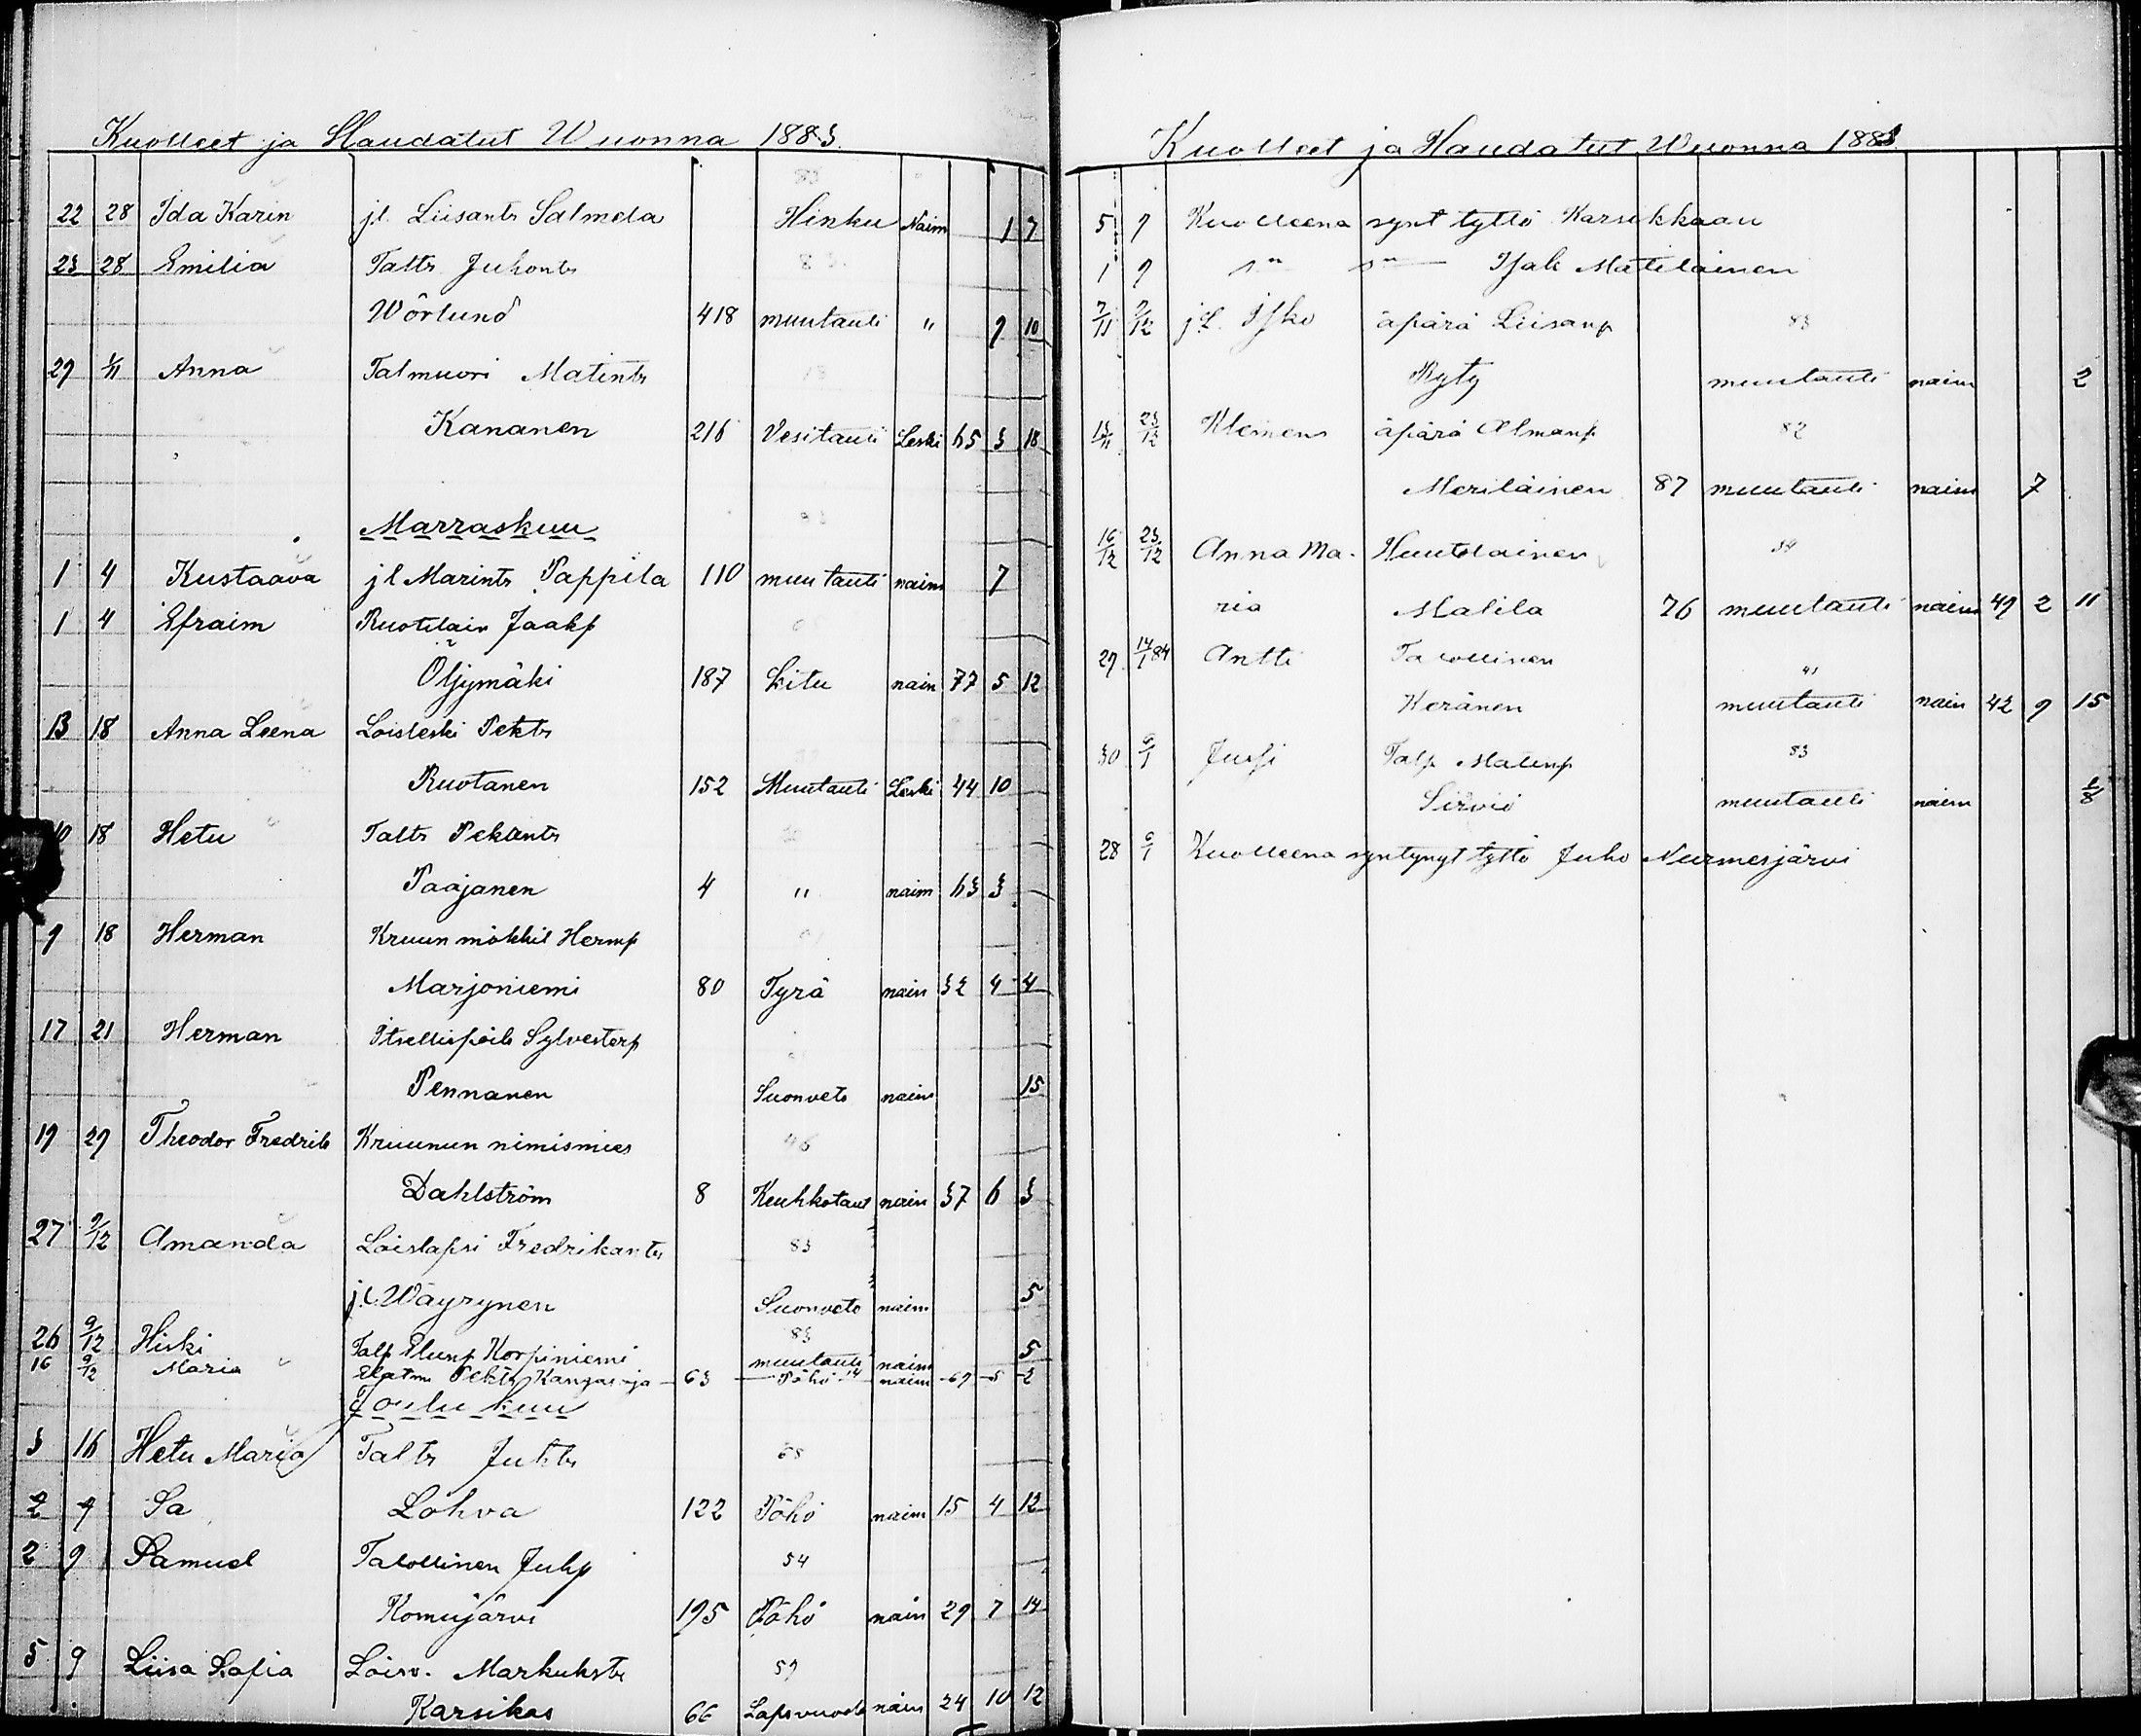 Kuolleet ja Haudatut Wuonna 1883.
22 28 Ida Karin jl. Liisants Salmela Hinku Naim 1 7
23 28 Emilia Talts Juhonts
Wörlund 418 muutauti " 9 10
29 1/11 Anna Talmuori Matints
Kananen 216 Vesitauti Leski 65 3 18
Marraskuu
1 4 Kustaava jl Marints Pappila 110 muutauti naim 7
1 4 Efraim Ruotilain Jaakp
Öljymäki 187 Litu nain 77 5 12
13 18 Anna Leena Loisleski Pekts
Ruotanen 152 Muutauti Leski 44 10
10 18 Hetu Talts Pekants
Paajanen 4 " naim 63 3
9 18 Herman Kruun mökkil Hermp
Marjoniemi 80 Tyrä nain 32 4 4
17 21 Herman Itsellispoik Sylvesterp
Pennanen Suonveto naim 15
19 29 Theodor Fredrik Kruunun nimismies 46
Dahlström 8 Keuhkotaut nain 37 6 3
27 9/12 Amanda Loislapsi Fredrikants 83
jl. Wäyrynen Suonveto naim 5
26 9/12 Hiski Talp Korpiniemi 83 muutauti naim 5
16 9/12 Maria Pekts Kangas 63 Pöhö 14 naim 69 5 2
Joulukuu
3 16 Hetu Maria Talts Juhts 68
2 9 Sa Lohva 122 Pöhö naim 15 4 12
2 9 Samuel Talollinen Juhp 54
Komujärvi 195 Pöhö nain 29 7 14
5 9 Liisa Sofia Loisv. Markukstr 59
Karsikas 66 Lapsvuode nain 24 10 12
Kuolleet ja Haudatut Wuonna 1883
5 9 Kuolleena synt tyttö Karsikkaan
1 9 Isak Matilainen
7/11 9/12 jl. Isko äpärä Liisanp 83
Ryty muutauti naim 2
13/11 23/12 Klemens äpärä Almanp 82
Meriläinen 87 muutauti naim 7
16/12 23/12 Anna Ma- Huutolainen 34
ria Matila 76 muutauti naim 49 2 11
29 14/1 84 Antti Talollinen 41
Keränen muutauti nain 42 9 15
30 6/1 Jussi Talp Matinp 83
Sirviö muutauti naim 1/8
28 6/1 Kuolleena syntynyt tyttö Juho Nurmesjärvi